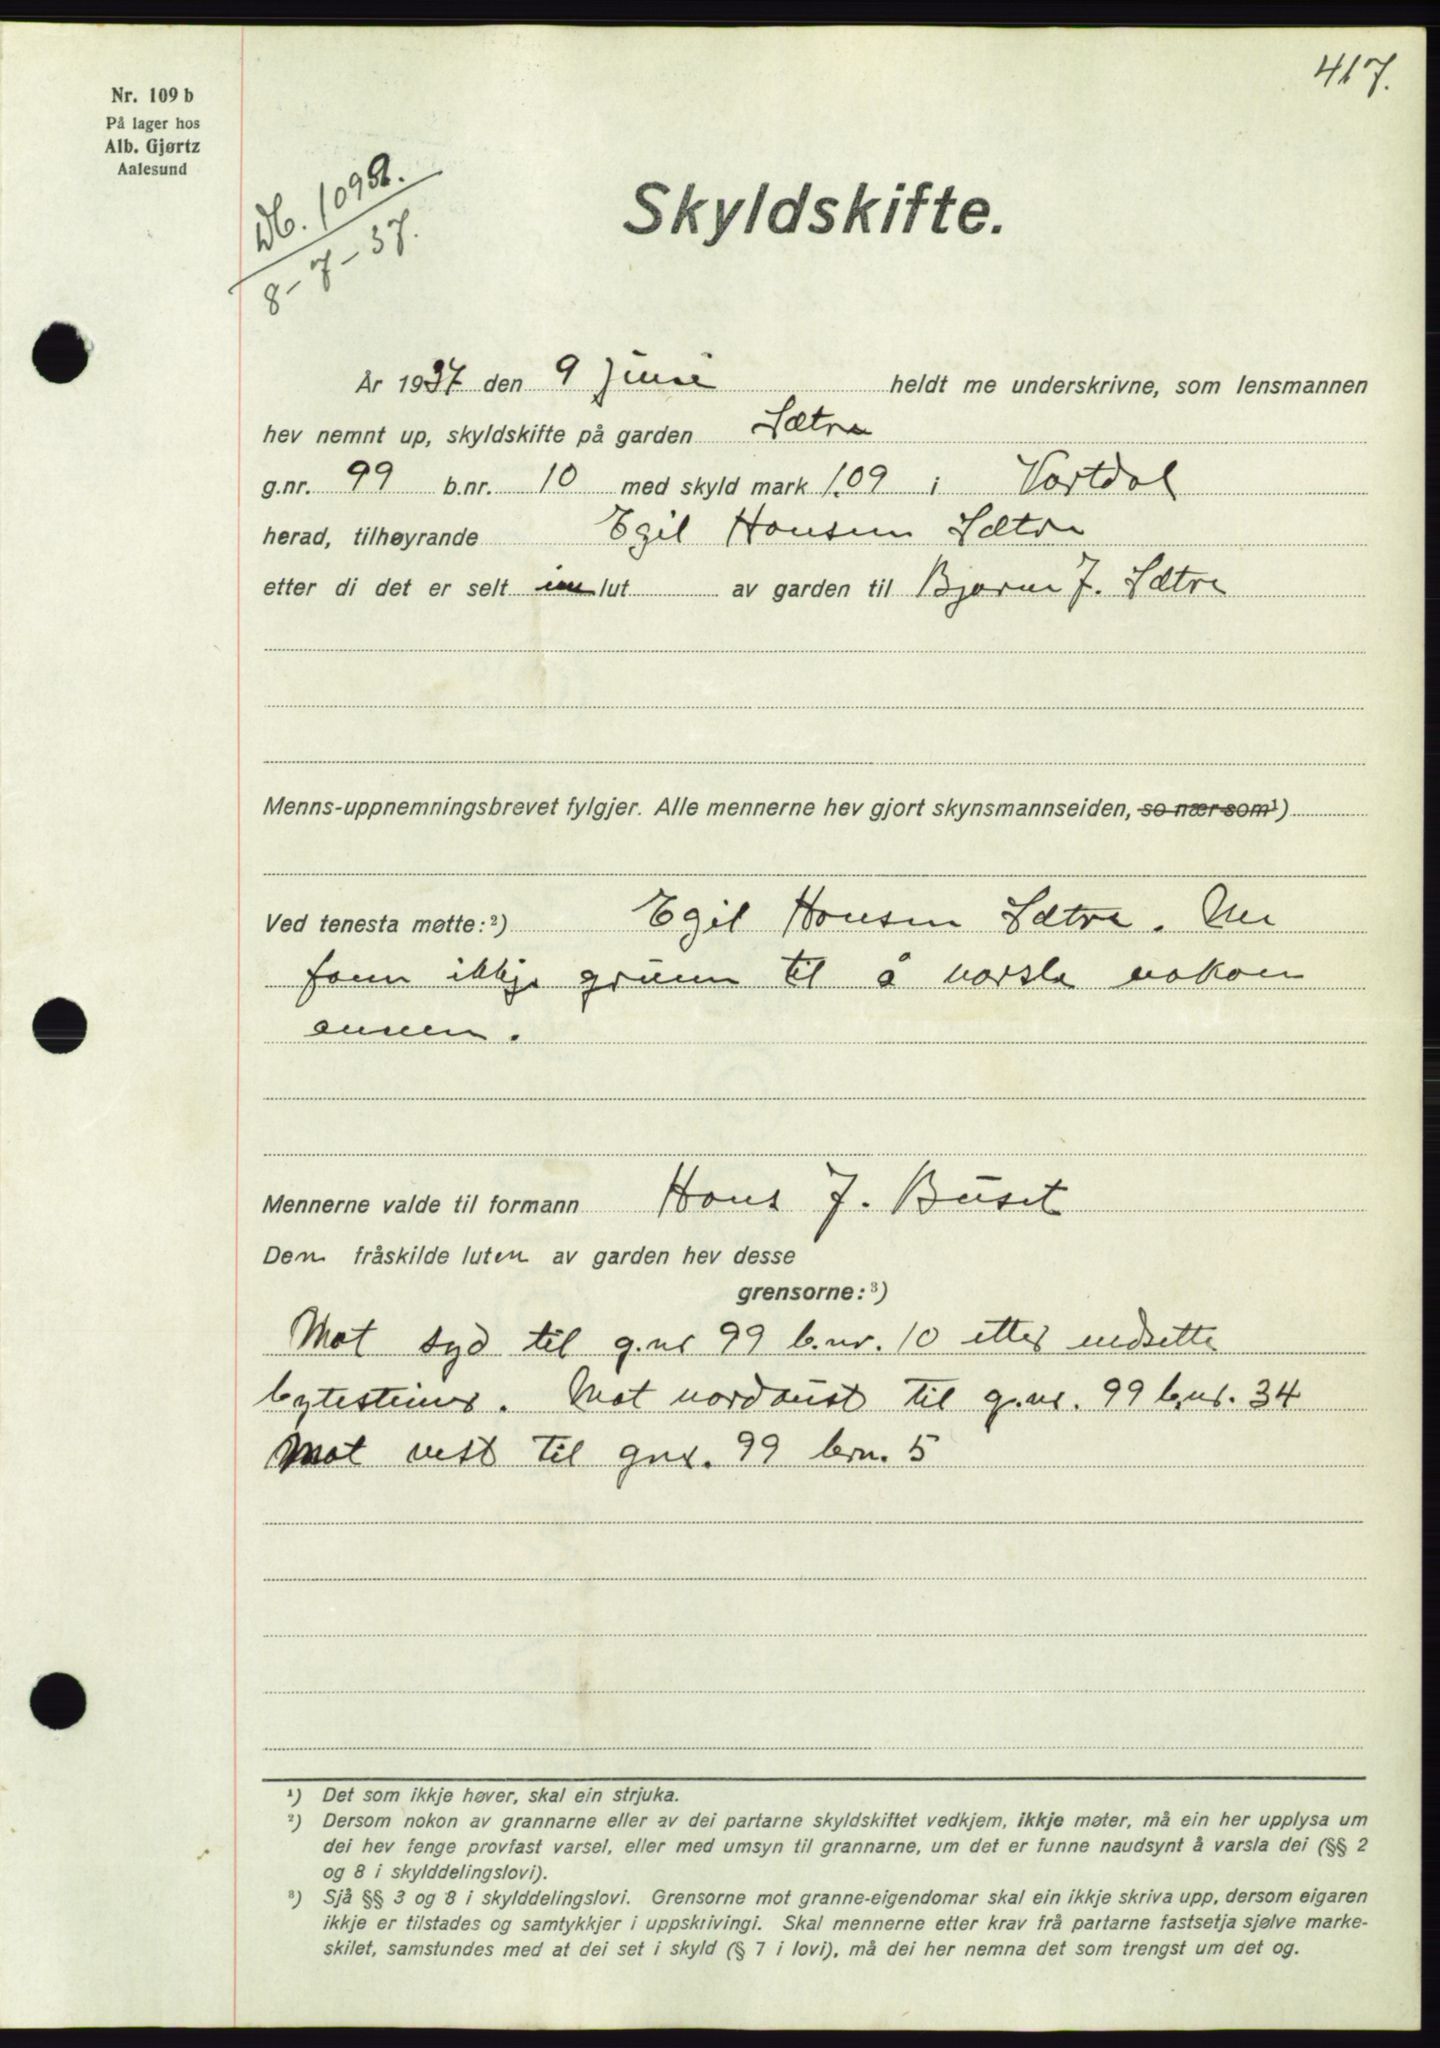 417.
Nr. 109 b
På lager hos
Alb. Gjørtz
Aalesund
Db. 1098.
8-7-37.
Skyldskifte.
År 1937 den 9 juni heldt me underskrivne, som lensmannen
hev nemnt up, skyldskifte på garden Sætre
g.nr. 99 b.nr. 10 med skyld mark 1.09 i Vartdal
herad, tilhøyrande Egil Hansen Sætre
etter di det er selt ein lut av garden til Bjarne J. Sætre
Menns-uppnemningsbrevet fylgjer. Alle mennerne hev gjort skynsmannseiden, so nær som¹)
Ved tenesta møtte:²) Egil Hansen Sætre. Me
fann ikkje grunn til å varsla nokon
annen.
Mennerne valde til formann Hans J. Buset
Den fråskilde luten av garden hev desse
grensorne:³)
Mot syd til g.nr 99 b.nr. 10 etter nedsette
bytesteiner. Mot nordaust til g.nr. 99 b.nr. 34
Mot vest til gnr. 99 brn. 5
¹) Det som ikkje høver, skal ein strjuka.
²) Dersom nokon av grannarne eller av dei partarne skyldskiftet vedkjem, ikkje møter, må ein her upplysa um
dei hev fenge provfast varsel, eller med umsyn til grannarne, um det er funne naudsynt å varsla dei (§§ 2
og 8 i skylddelingslovi).
³) Sjå §§ 3 og 8 i skylddelingslovi. Grensorne mot granne-eigendomar skal ein ikkje skriva upp, dersom eigaren
ikkje er tilstades og samtykkjer i uppskrivingi. Skal mennerne etter krav frå partarne fastsetja sjølve marke-
skilet, samstundes med at dei set i skyld (§ 7 i lovi), må dei her nemna det som trengst um det og.